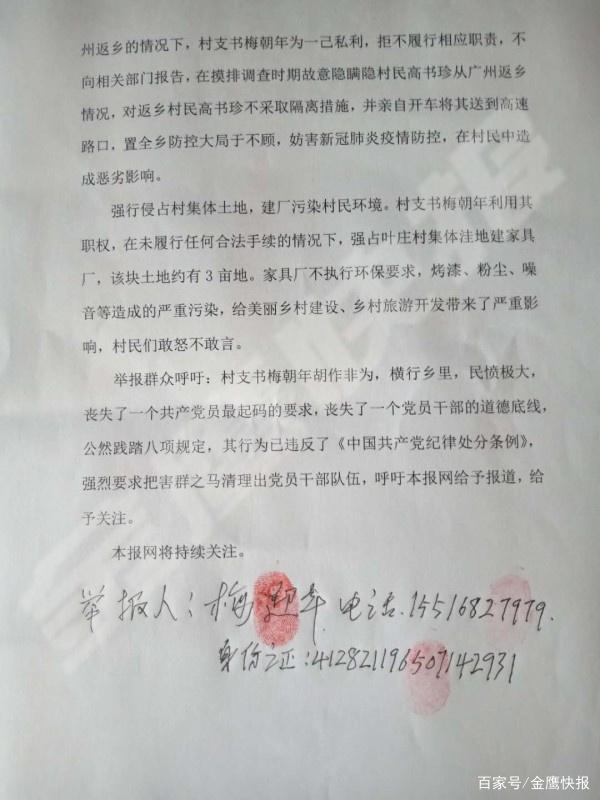 州返乡的情况下，村支书梅朝年为一己私利，拒不履行相应职责，不
向相关部门报告，在摸排调查时期故意隐瞒隐村民高书珍从广州返乡
情况，对返乡村民高书珍不采取隔离措施，并亲自开车将其送到高速
路口，置全乡防控大局于不顾，妨害新冠肺炎疫情防控，在村民中造
成恶劣影响。
强行侵占村集体土地，建厂污染村民环境。村支书梅朝年利用其
职权，在未履行任何合法手续的情况下，强占叶庄村集体洼地建家具
厂，该块土地约有 3 亩地。家具厂不执行环保要求，烤漆、粉尘、噪
音等造成的严重污染，给美丽乡村建设、乡村旅游开发带来了严重影
响，村民们敢怒不敢言。
举报群众呼吁：村支书梅朝年胡作非为，横行乡里，民愤极大，
丧失了一个共产党员最起码的要求，丧失了一个党员干部的道德底线，
公然践踏八项规定，其行为已违反了《中国共产党纪律处分条例》，
强烈要求把害群之马清理出党员干部队伍，呼吁本报网给予报道，给
予关注。
本报网将持续关注。
举报人：梅 年 电话.15516827979.
身份证：412821196507142931
百家号/金鹰快报